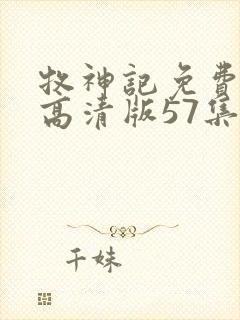 牧神記免費
高清版57集
千妹